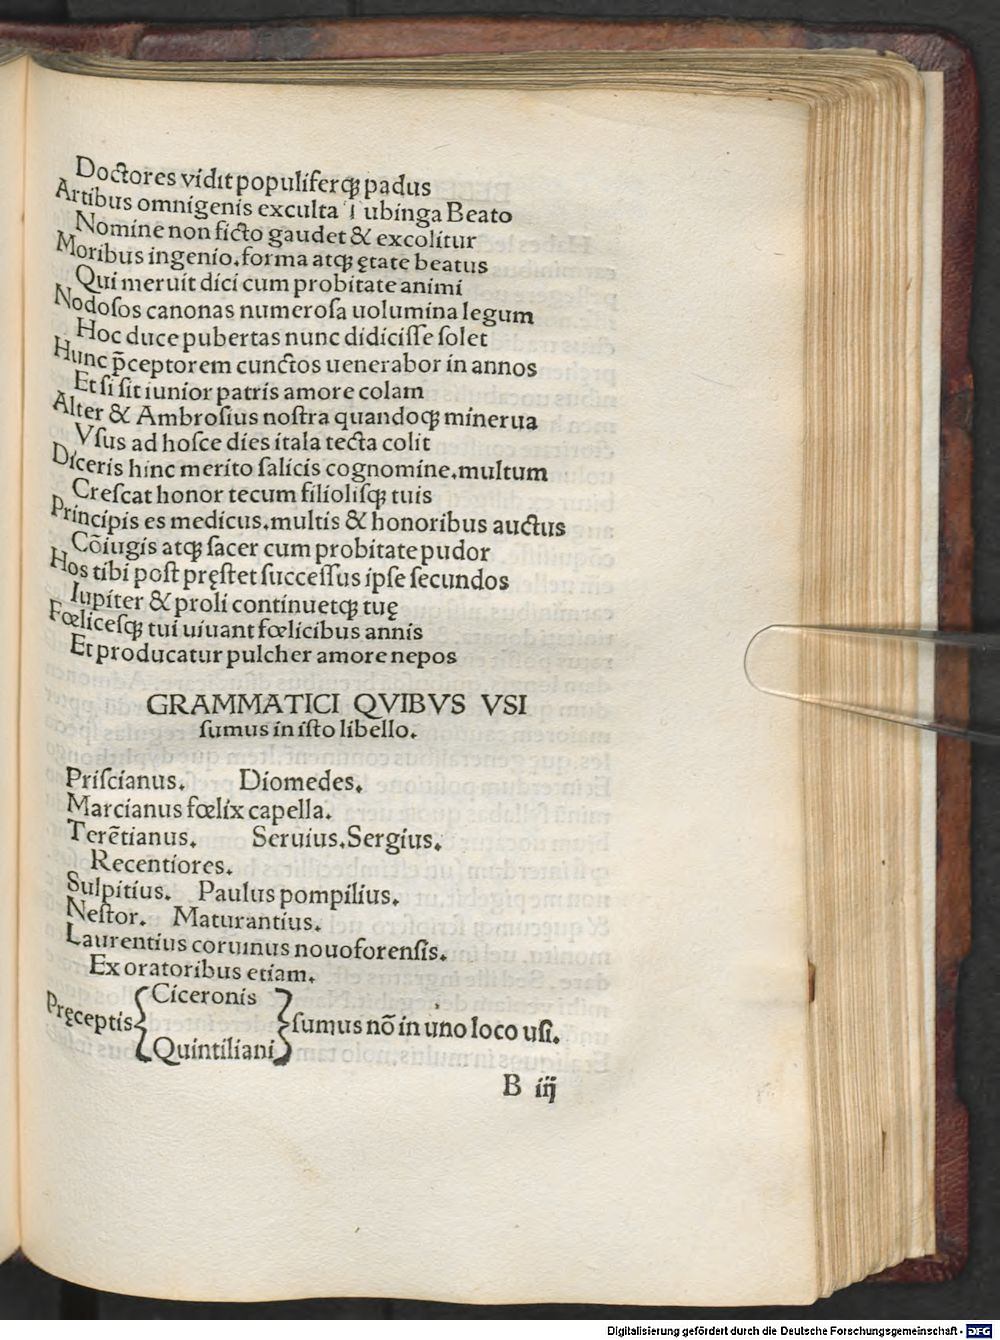 Doctores vidit populiferqꝫ padus
Artibus omnigenis exculta Tubinga Beato
Nomine non ficto gaudet & excolitur
Moribus ingenio.forma atqꝫ ętate beatus
Qui meruit dici cum probitate animi
Nodoſos canonas numeroſa uolumina legum
Hoc duce pubertas nunc didiciſſe ſolet
Hunc p̄ceptorem cunctos uenerabor in annos
Et ſi ſit iunior patris amore colam
Alter & Ambroſius noſtra quandoqꝫ minerua
Vſus ad hoſce dies itala tecta colit
Diceris hinc merito ſalicis cognomine.multum
Creſcat honor tecum filioliſqꝫ tuis
Principis es medicus.multis & honoribus auctus
Cōiugis atqꝫ ſacer cum probitate pudor
Hos tibi poſt pręſtet ſucceſſus ipſe ſecundos
Iupiter & proli continuetqꝫ tuę
Fœliceſqꝫ tui uiuant fœlicibus annis
Et producatur pulcher amore nepos
GRAMMATICI QVIBVS VSI
ſumus in iſto libello.
Priſcianus. Diomedes.
Marcianus fœlix capella.
Terētianus. Seruius.Sergius.
Recentiores.
Sulpitius. Paulus pompilius.
Neſtor. Maturantius.
Laurentius coruinus nouoforenſis.
Ex oratoribus etiam.
Ciceronis
Pręceptis ſumus nō in uno loco uſi.
Quintiliani
B iij
Digitalisierung gefördert durch die Deutsche Forschungsgemeinschaft - DFG